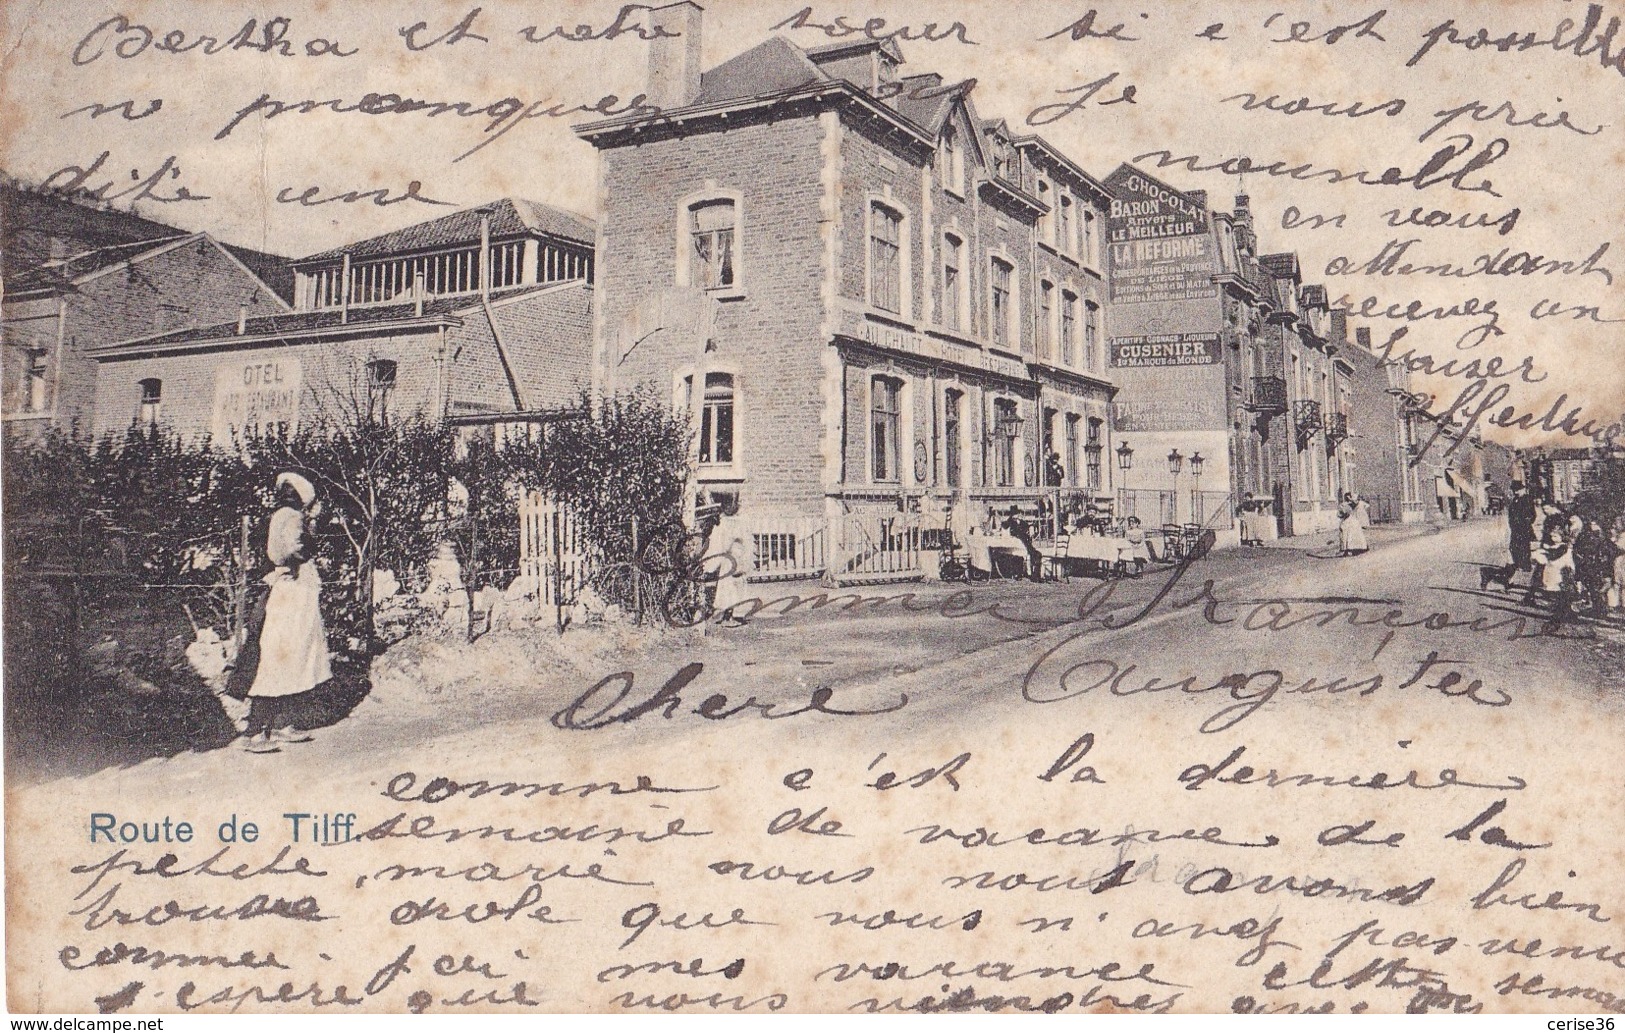 Bertha et votre soeur si c'est possible
ne manquez je vous prie
dite une nouvelle
en vous
attendant
recevez un
baiser
CHOCOLAT
BARON
Anvers
LE MEILLEUR
LA REFORME
CORRESPONDANCES DE LA PROVINCE
DE LIEGE
APERITIFS COGNACS LIQUEURS
CUSENIER
1e MARQUE du MONDE
EN VENTE
OTEL
RESTAURANT
Emma Françoise
Chère Augustee
comme c'est la dernière
Route de Tilff.
semaine de vacance de la
petite marie nous nous avons bien
trouvre drole que vous n'avez pas venu
comme j'ai mes vacance cette semai
s'espère que nous viendrez avec
cerise36